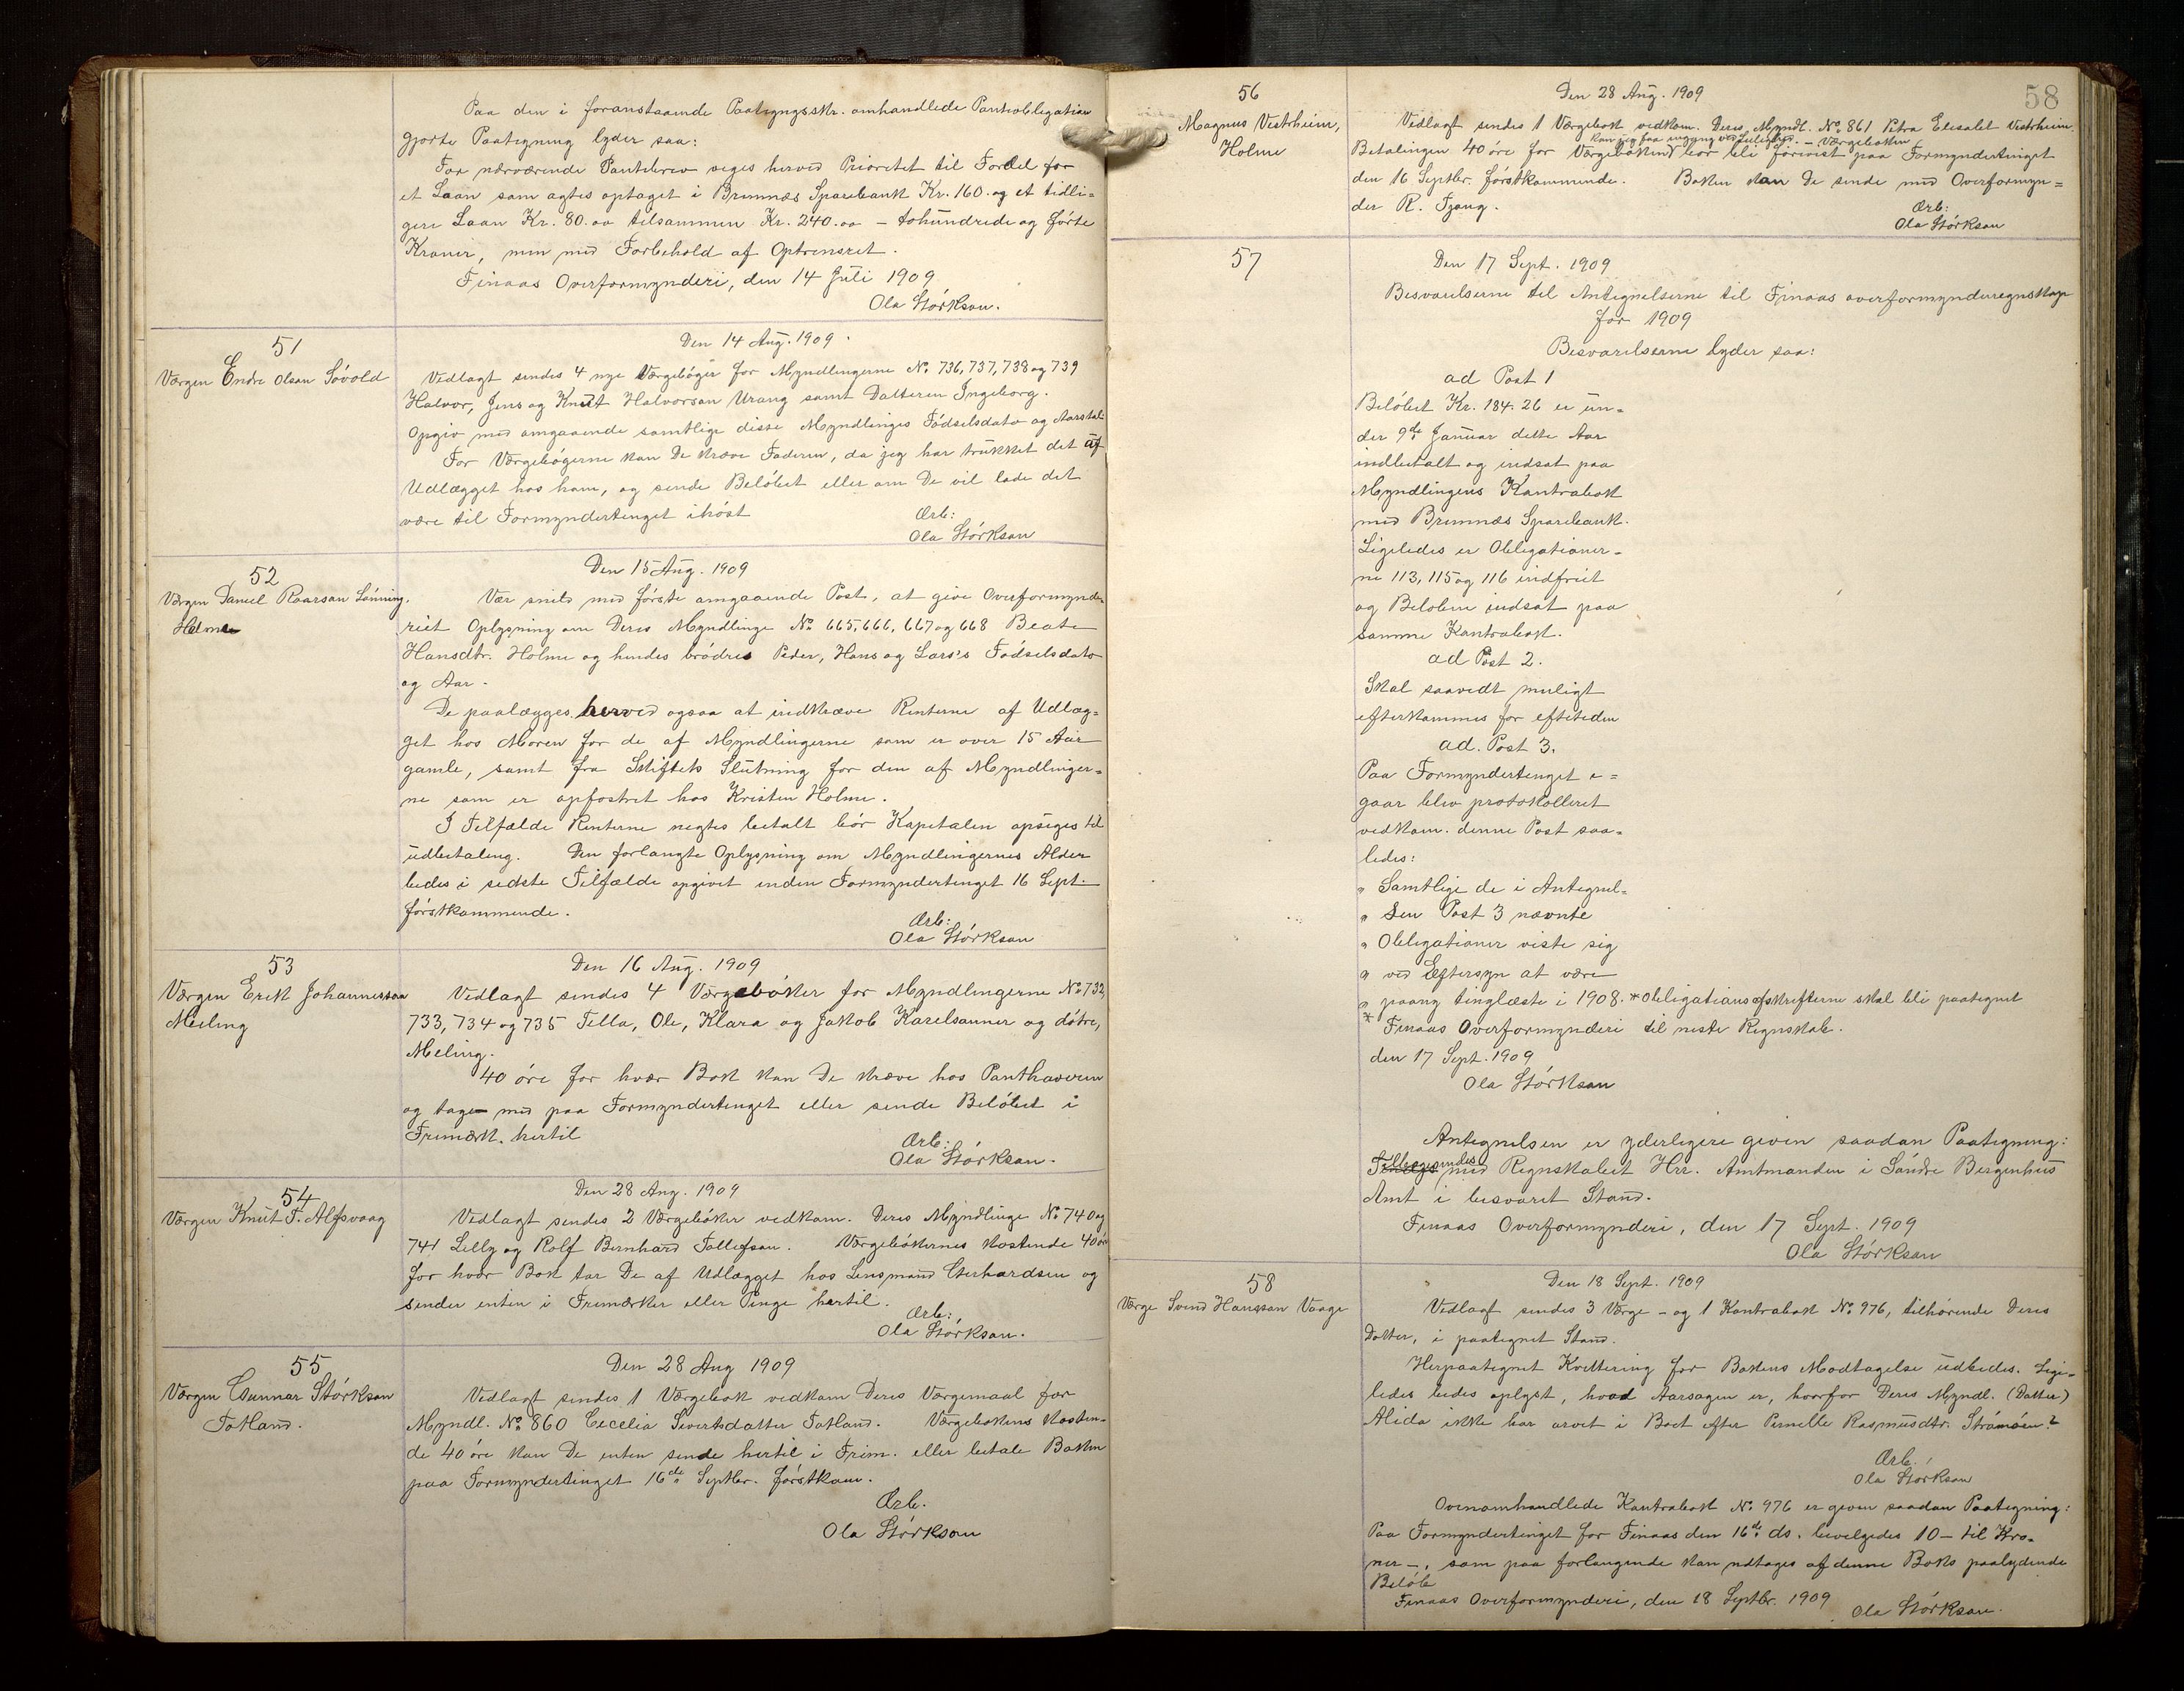 Paa den i foranstaaende Paategngsskr. omhandlede Pantobligation
gjorte Paategning lyder saa:
For nærværende Pantebrev viges herved Prioritet til Fordel for
et Laan som agtes optaget i Bremnæs Sparebank Kr. 160. og et tidli-
gere Laan Kr. 80.00 tilsammen Kr. 240.00 – tohundrede og førte
Kroner, men med Forbehold af Optrinsret.
Finaas Overformynderi, den 14 Juli 1909
Ola Størkson.
51
Værgen Endre Olson Søvold
Den 14 Aug. 1909
Vedlagt sendes 4 nye Værgebøger for Myndlingerne No. 736, 737, 738 og 739
Halvor, Jens og Knut Halvorson Urang samt Datteren Ingeborg.
Opgiv med omgaaende samtlige disse Myndlinges Fødselsdato og Aarstal
For Værgebøgerne kan De kræve Faderen, da jeg har trukket det af
Udlægget hos ham, og sende Beløbet eller om De vil lade det
være til Formyndertinget ihøst
Ærb:
Ola Størkson
52
Værgen Daniel Roarson Lønning.
Holme
Den 15 Aug. 1909
Vær snild med første omgaaende Post, at give Overformynde-
riet Oplysning om Deres Myndlinge No 665, 666, 667 og 668 Beate
Hansdtr. Holme og hendes brødres Peder, Hans og Lars's Fødselsdato
og Aar.
De paalægges herved ogsaa at indkræve Renterne af Udlæg-
get hos Moren for de af Myndlingerne som er over 15 Aar
gamle, samt fra Skiftets Slutning for den af Myndlinger-
ne som er opfostret hos Kristen Holme.
I Tilfælde Renterne negtes betalt bør Kapitalen opsiges til
udbetaling. Den forlangte Oplysning om Myndlingernes Alder
bedes i sidste Tilfælde opgivet inden Formyndertinget 16 Sept.
førstkommende.
Ærb:
Ola Størkson
53
Værgen Erik Johannesson
Meling
Den 16 Aug. 1909
Vedlagt sendes 4 Værgebøker for Myndlingerne No 732,
733, 734 og 735 Tella, Ole, Klara og Jakob Karelsønner og døtre,
Meling.
40 øre for hvær Bok kan De kræve hos Panthaveren
og tage med paa Formyndertinget eller sende Beløbet i
Frimærk. hertil
Ærb:
Ola Størkson.
54
Værgen Knut T. Alfsvaag
Den 28 Aug. 1909
Vedlagt sendes 2 Værgebøker vedkom. Deres Myndlinge No 740 og
741 Lelly og Rolf Bernhard Tollefson. Værgebøkernes kostende 40 øre
for hvær Bok tar De af Udlægget hos Lensmand Gerhardsen og
sender enten i Frimærker eller Penge hertil.
Ærb:
Ola Størkson.
55
Værgen Gunnar Størkson
Totland.
Den 28 Aug 1909
Vedlagt sendes 1 Værgebok vedkom Deres Værgemaal for
Myndl. No 860 Cecelia Sivertsdatter Totland. Værgebokens kosten-
de 40 øre kan De enten sende hertil i Frim. eller betale Boken
paa Formyndertinget 16de Septbr. førstkom.
Ærb.
Ola Størkson
58
56
Magnus Vestrheim,
Holme
Den 28 Aug. 1909
Vedlagt sendes 1 Værgebok vedkom. Deres Myndl. No. 861 Petra Elesabet Vestrheim.
kan jeg faa ved Leilighed. – Værgeboken
Betalingen 40 øre for Værgeboken bør bli forevist paa Formyndertinget
den 16 Septbr. førstkommende. Boken kan De sende med Overformyn-
der R. Fjong.
Ærb:
Ola Størkson
57
Den 17 Sept. 1909
Besvarelserne til Antegnelserne til Finaas overformynderregnskap
for 1909
Besvarelserne lyder saa:
ad Post 1
Beløbet Kr. 184.26 er un-
der 9de Januar dette Aar
indbetalt og indsat paa
Myndlingens Kontrabok
med Bremnæs Sparebank.
Ligeledes er Obligationer-
ne 113, 115 og 116 indfriet
og Beløbene indsat paa
samme Kontrabok.
ad Post 2.
Skal saavidt muligt
efterkommes for eftetiden
ad. Post 3.
Paa Formyndertinget i-
gaar blev protokolleret
vedkom. denne Post saa-
ledes:
" Samtlige de i Antegnel-
" sen Post 3 nævnte
" Obligationer viste sig
" ved Eftersyn at være
" paany tinglæste i 1908. * Obligationsafskrifterne skal bli paategnet
* Finaas Overformynderi til neste Regnskab.
den 17 Sept. 1909
Ola Størkson
Antegnelsen er yderligere given saadan Paategning:
Tilbagesendes med Regnskabet Hr. Amtmanden i Søndre Bergenhus
Amt i besvaret Stand.
Finaas Overformynderi, den 17 Sept. 1909
Ola Størkson
58
Værge Svend Hansson Vaage
Den 18 Sept. 1909
Vedlagt sendes 3 Værge – og 1 Kontrabok No. 976, tilhørende Deres
Datter, i paategnet Stand.
Herpaategnet Kvittering for Bokens Modtagelse udbedes. Lige-
ledes bedes oplyst, hvad Aarsagen er, hvorfor Deres Myndl. (Datter)
Alida ikke har arvet i Boet efter Pernelle Rasmusdtr. Strømøen?
Ærb.
Ola Størkson
Ovenomhandlede Kontrabok No. 976 er given saadan Paategning:
Paa Formyndertinget for Finaas den 16de ds. bevilgedes 10 – til Kro-
ner –, som paa forlangende kan udtages af denne Boks paalydende
Beløb
Finaas Overformynderi, den 18 Septbr. 1909
Ola Størkson.